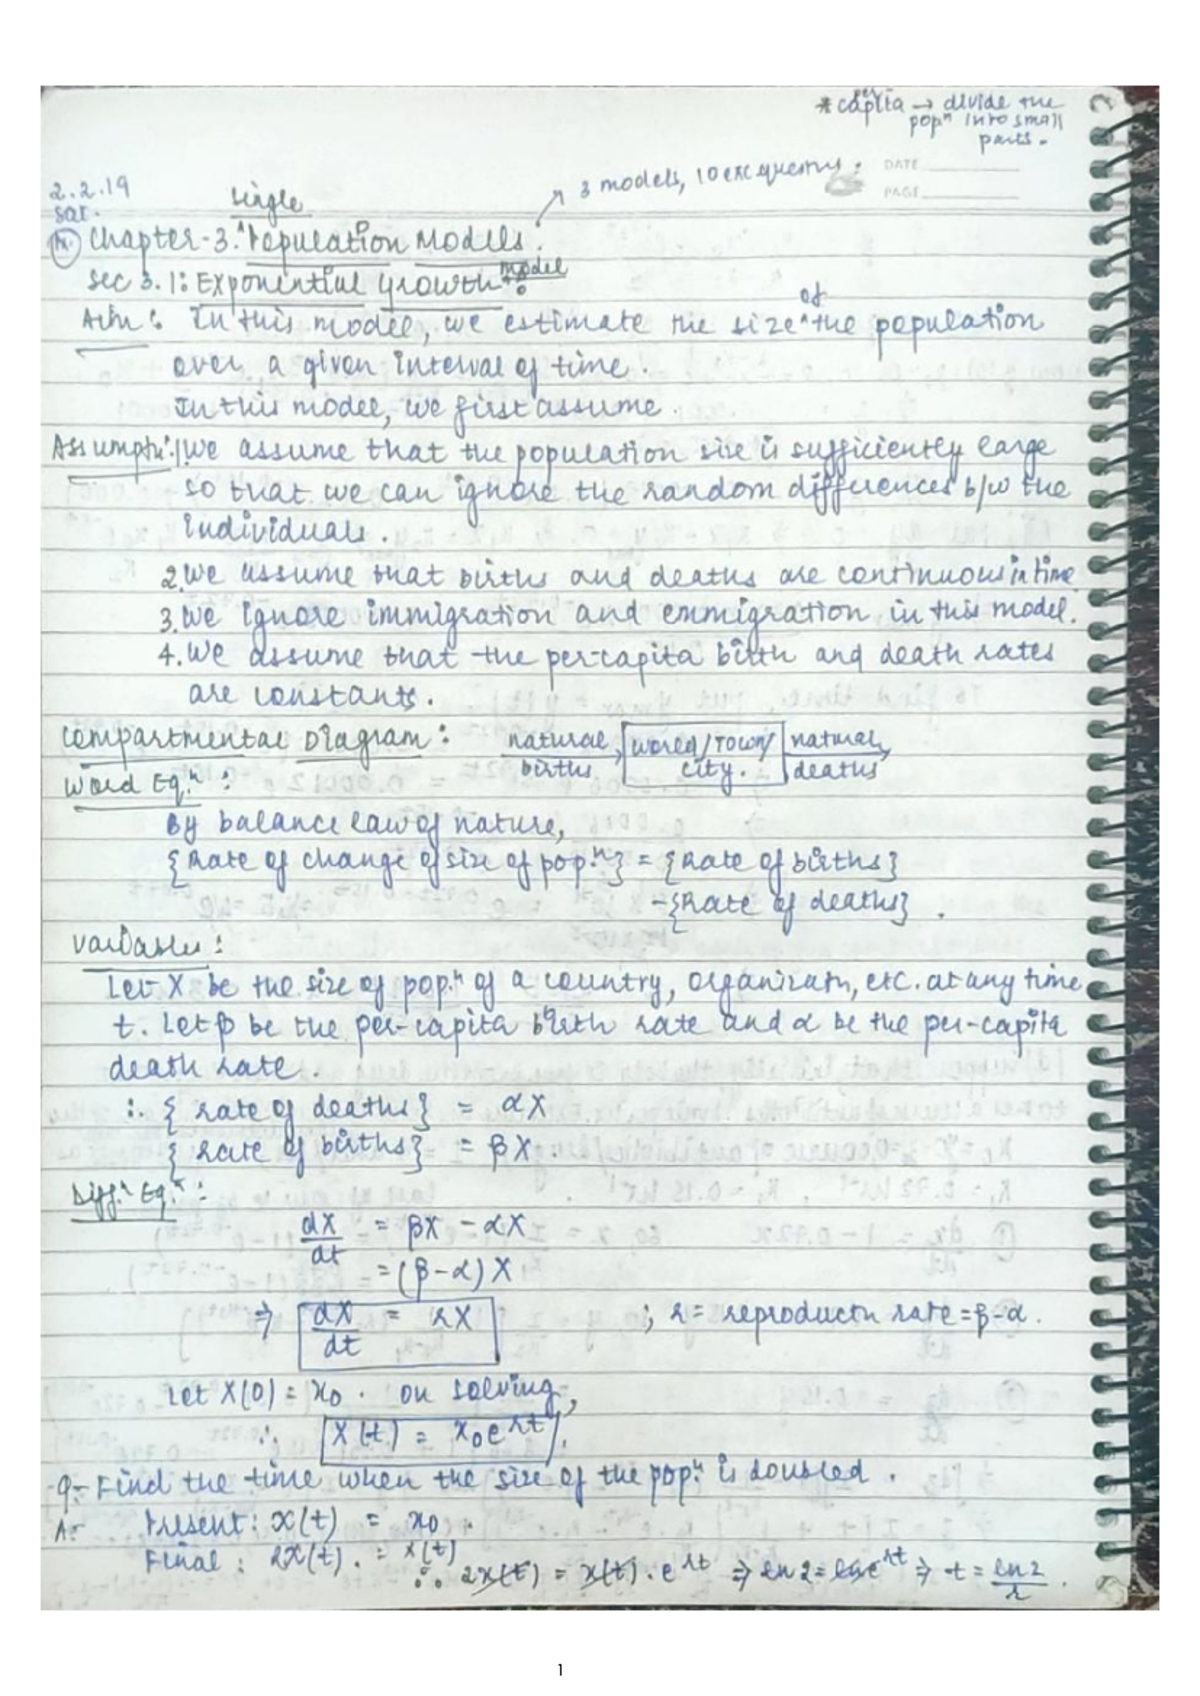 * per capita → divide the
popⁿ into small
parts.
DATE
PAGE
2.2.19
Sat.
3 models, 10 exc questns.
single
Chapter-3. Population Models.
Sec 3.1: Exponential Growth model:
Aim: In this model, we estimate the size of the population
over a given interval of time.
In this model, we first assume.
Assumptn: 1. We assume that the population size is sufficiently large
so that we can ignore the random differences b/w the
individuals.
2. We assume that births and deaths are continuous in time
3. We ignore immigration and emmigration in this model.
4. We assume that the per-capita birth and death rates
are constants.
Compartmental Diagram: natural births → World/Town/City. natural deaths →
Word Eq.ⁿ:
By balance law of nature,
{Rate of change of size of pop.ⁿ} = {Rate of births}
-{Rate of deaths}.
Variables:
Let X be the size of pop.ⁿ of a country, organizatn, etc. at any time
t. Let β be the per-capita birth rate and α be the per-capita
death rate.
∴ {rate of deaths} = αX
{rate of births} = βX.
Diff.ⁿ Eq.ⁿ:
dX/dt = βX - αX
= (β-α)X
⇒ dX/dt = rX ; r = reproductn rate = β-α.
Let X(0) = x₀. on solving,
∴ X(t) = x₀e^rt.
Q- Find the time when the size of the pop.ⁿ is doubled.
A- Present: x(t) = x₀.
Final: 2x(t). = x(t)
∴ 2x(t) = x(t).e^rt ⇒ ln 2 = ln e^rt ⇒ t = ln 2/r.
1